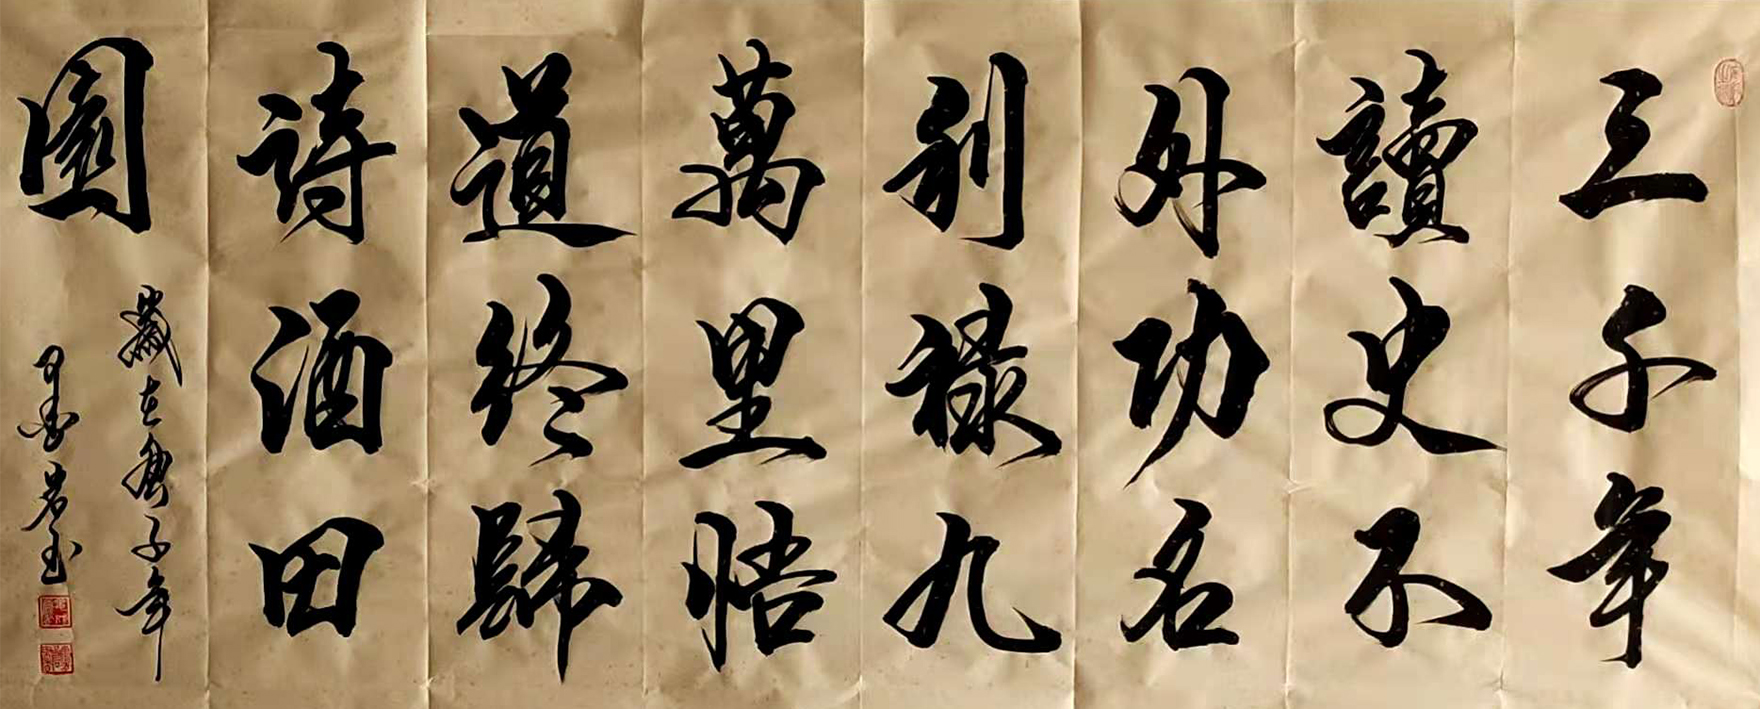 三千年
讀史不
外功名
利祿九
萬里悟
道終歸
詩酒田
園
歲在庚子年